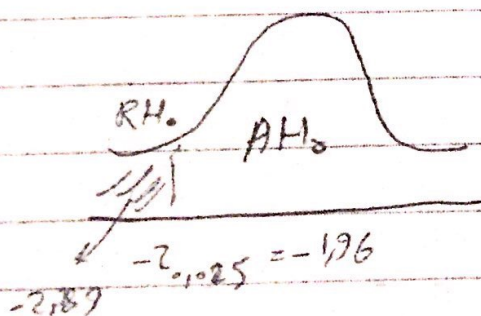 RH₀
AH₀
-Z₀,₀₂₅ = -1,96
-2,89